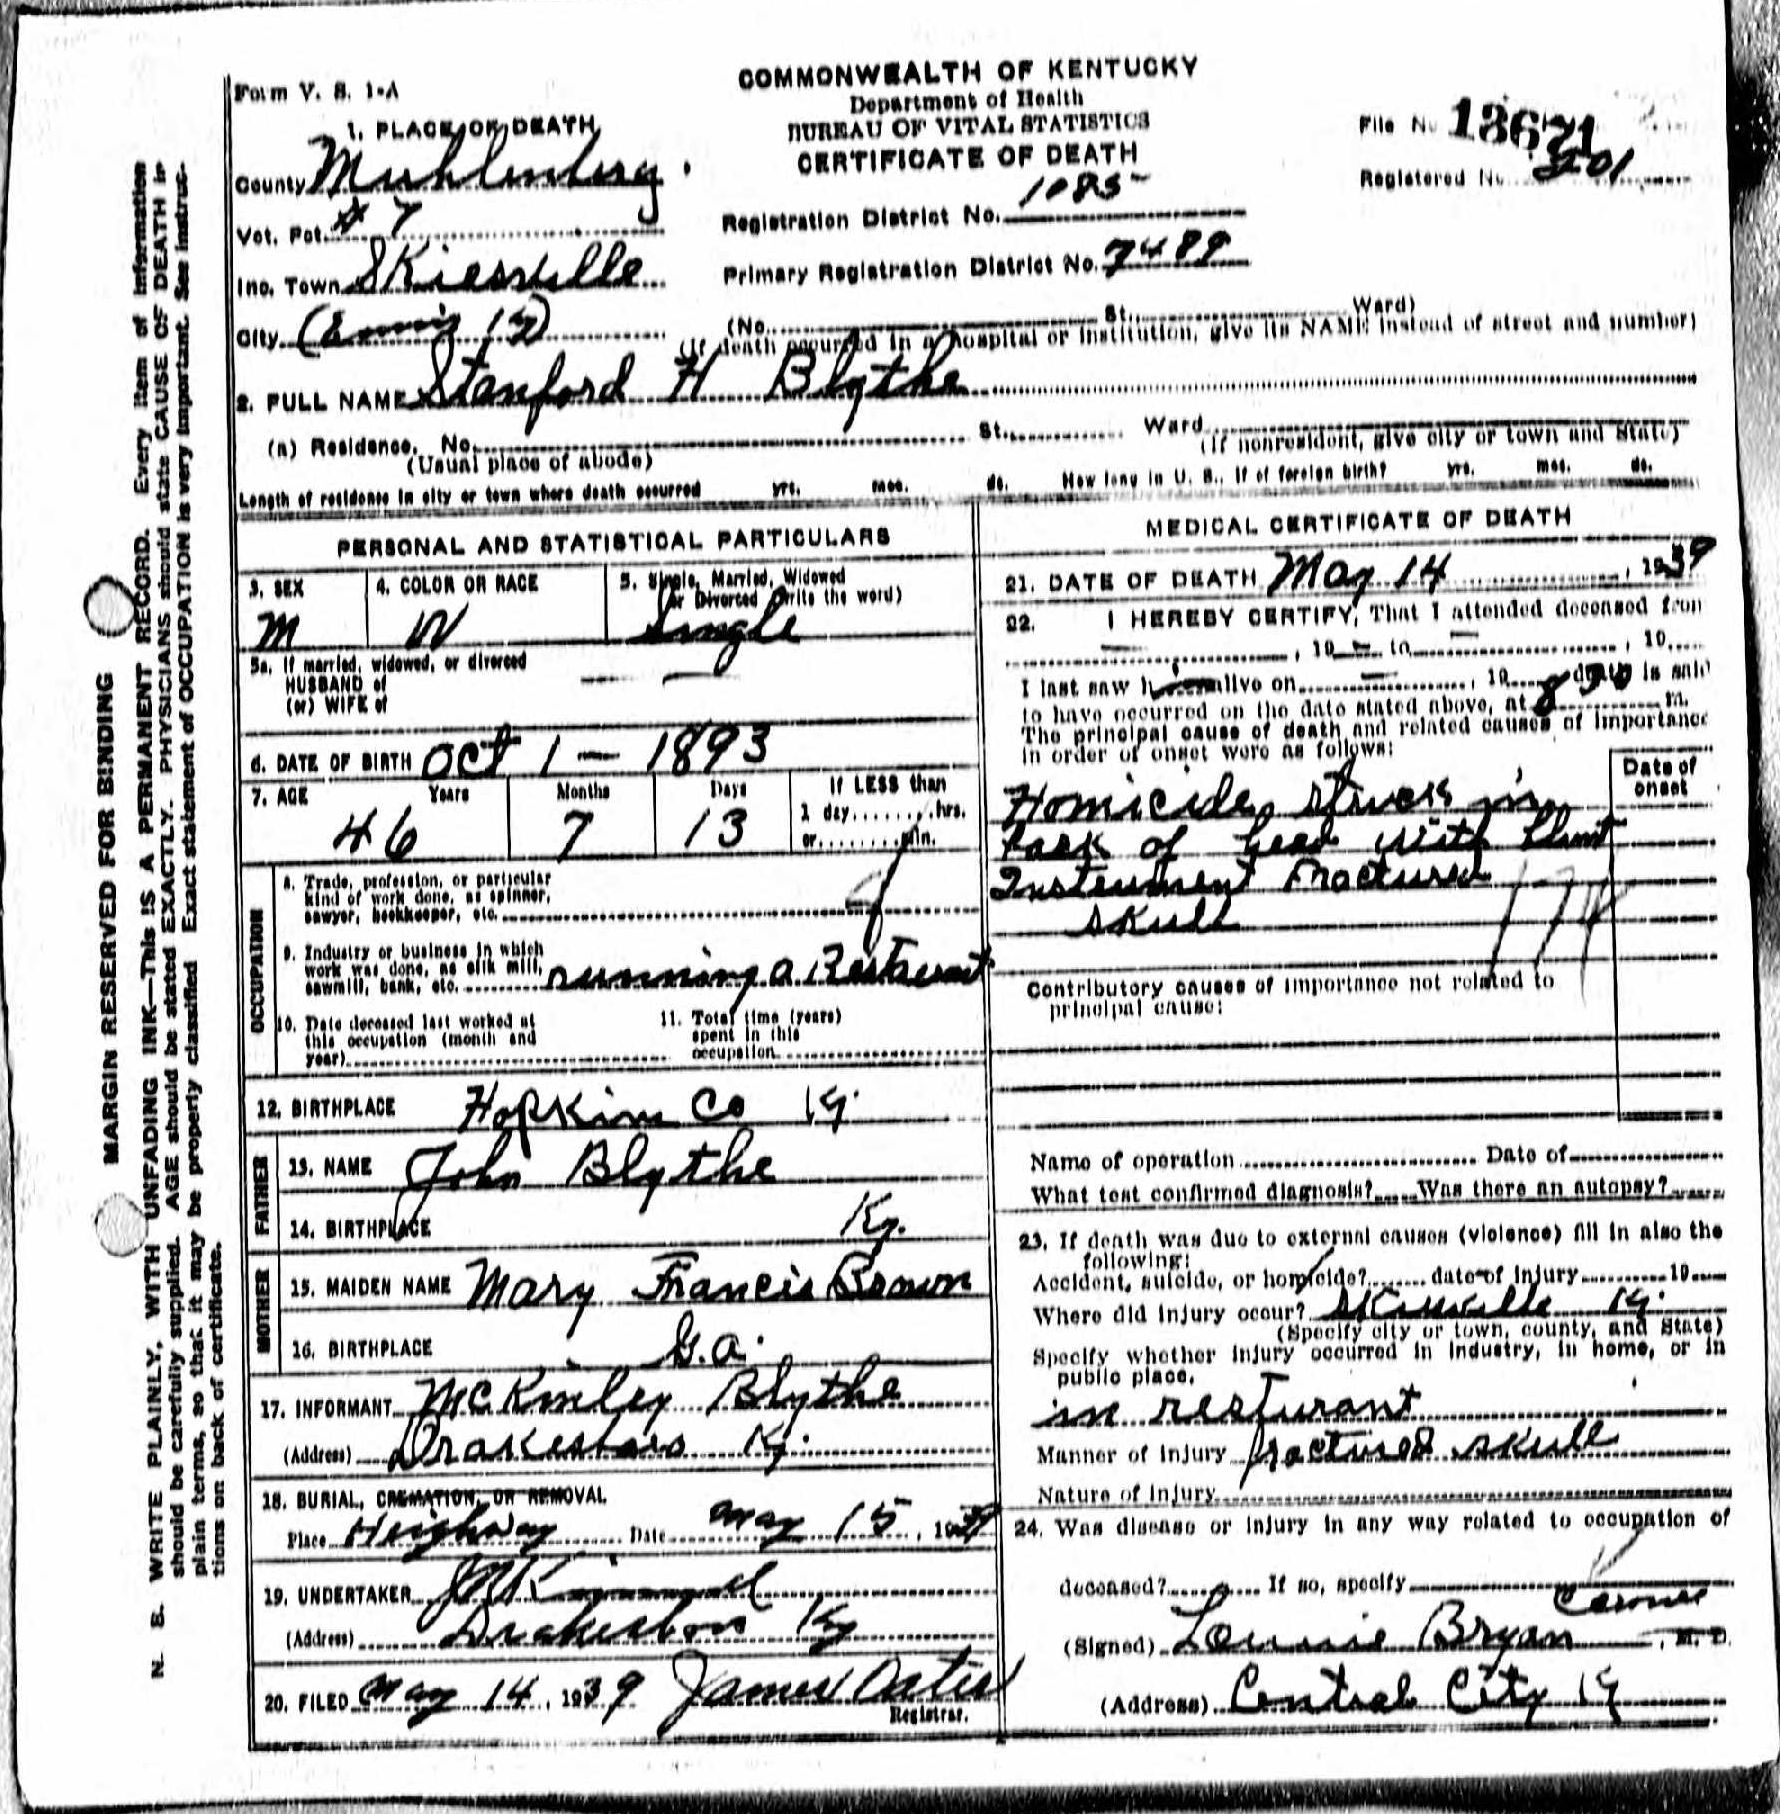 Form V. S. 1-A
COMMONWEALTH OF KENTUCKY
Department of Health
BUREAU OF VITAL STATISTICS
CERTIFICATE OF DEATH
File No 13671
Registered No. 201
1. PLACE OF DEATH
County Muhlenberg.
Vot. Pct. # 7
Inc. Town Skiesville
City (Ennis Ky)
Registration District No. 1085
Primary Registration District No. 7489
(No. St. Ward)
(If death occurred in a hospital or institution, give its NAME instead of street and number)
2. FULL NAME Stanford H Blythe
(a) Residence, No. St. Ward
(Usual place of abode) (If nonresident, give city or town and State)
Length of residence in city or town where death occurred yrs. mos. ds. How long in U. S., if of foreign birth? yrs. mos. ds.
PERSONAL AND STATISTICAL PARTICULARS
3. SEX M
4. COLOR OR RACE W
5. Single, Married, Widowed
or Divorced (write the word)
Single
5a. If married, widowed, or divorced
HUSBAND of
(or) WIFE of
6. DATE OF BIRTH Oct 1 — 1893
7. AGE Years Months Days If LESS than
46 7 13 1 day........hrs.
or........min.
OCCUPATION
8. Trade, profession, or particular
kind of work done, as spinner,
sawyer, bookkeeper, etc.
9. Industry or business in which
work was done, as silk mill,
sawmill, bank, etc. running a Restaurant
10. Date deceased last worked at
this occupation (month and
year)
11. Total time (years)
spent in this
occupation
12. BIRTHPLACE Hopkins Co Ky.
FATHER
13. NAME John Blythe
14. BIRTHPLACE Ky.
MOTHER
15. MAIDEN NAME Mary Francis Brown
16. BIRTHPLACE G.a.
17. INFORMANT McKinley Blythe
(Address) Drakesboro Ky.
18. BURIAL, CREMATION, OR REMOVAL
Place Heighway Date May 15, 1939
19. UNDERTAKER
(Address) Drakesboro Ky
20. FILED May 14, 1939 James Oates
Registrar.
MEDICAL CERTIFICATE OF DEATH
21. DATE OF DEATH May 14, 1939
22. I HEREBY CERTIFY, That I attended deceased from
, 19 — to , 19
I last saw h alive on , 19 death is said
to have occurred on the date stated above, at 8 30 m.
The principal cause of death and related causes of importance
in order of onset were as follows:
Date of
onset
Homicide, struck in
back of head with blunt
Instrument Fractured
skull
Contributory causes of importance not related to
principal cause:
Name of operation Date of
What test confirmed diagnosis? Was there an autopsy?
23. If death was due to external causes (violence) fill in also the
following:
Accident, suicide, or homicide? date of injury 19
Where did injury occur? Skiesville Ky.
(Specify city or town, county, and State)
Specify whether injury occurred in industry, in home, or in
public place.
in resturant
Manner of injury fractured skull
Nature of injury
24. Was disease or injury in any way related to occupation of
deceased? If so, specify
Coroner
(Signed) Lounie Bryan, M. D.
(Address) Central City Ky
MARGIN RESERVED FOR BINDING
N. B. WRITE PLAINLY, WITH UNFADING INK—This IS A PERMANENT RECORD. Every item of information
should be carefully supplied. AGE should be stated EXACTLY. PHYSICIANS should state CAUSE OF DEATH in
plain terms, so that it may be properly classified. Exact statement of OCCUPATION is very important. See instruc-
tions on back of certificate.